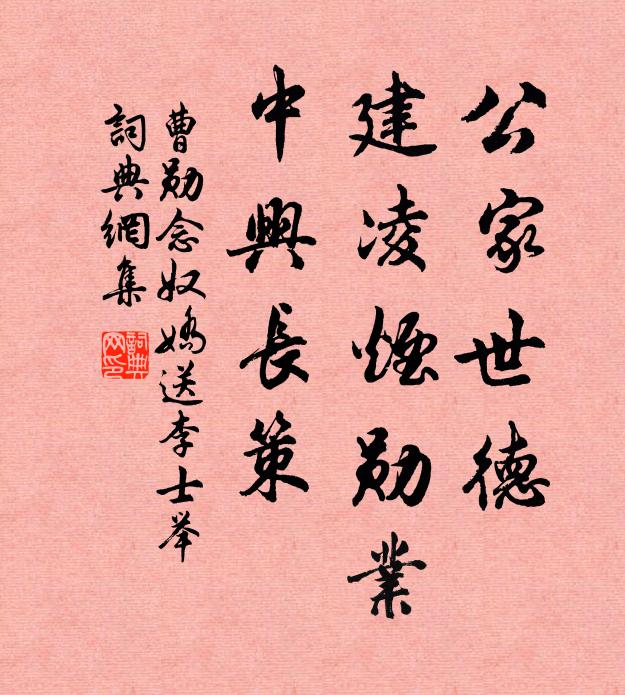 公家世德
建凌煙勛業
中興長策
曹勛念奴嬌送李士举
詞典網集
詞典网印